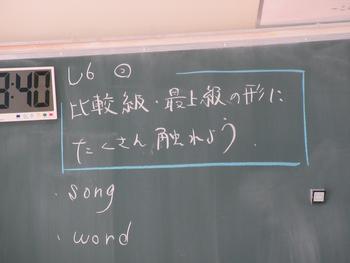 L6 ②
比較級・最上級の形に
たくさん触れよう.
・song
・word